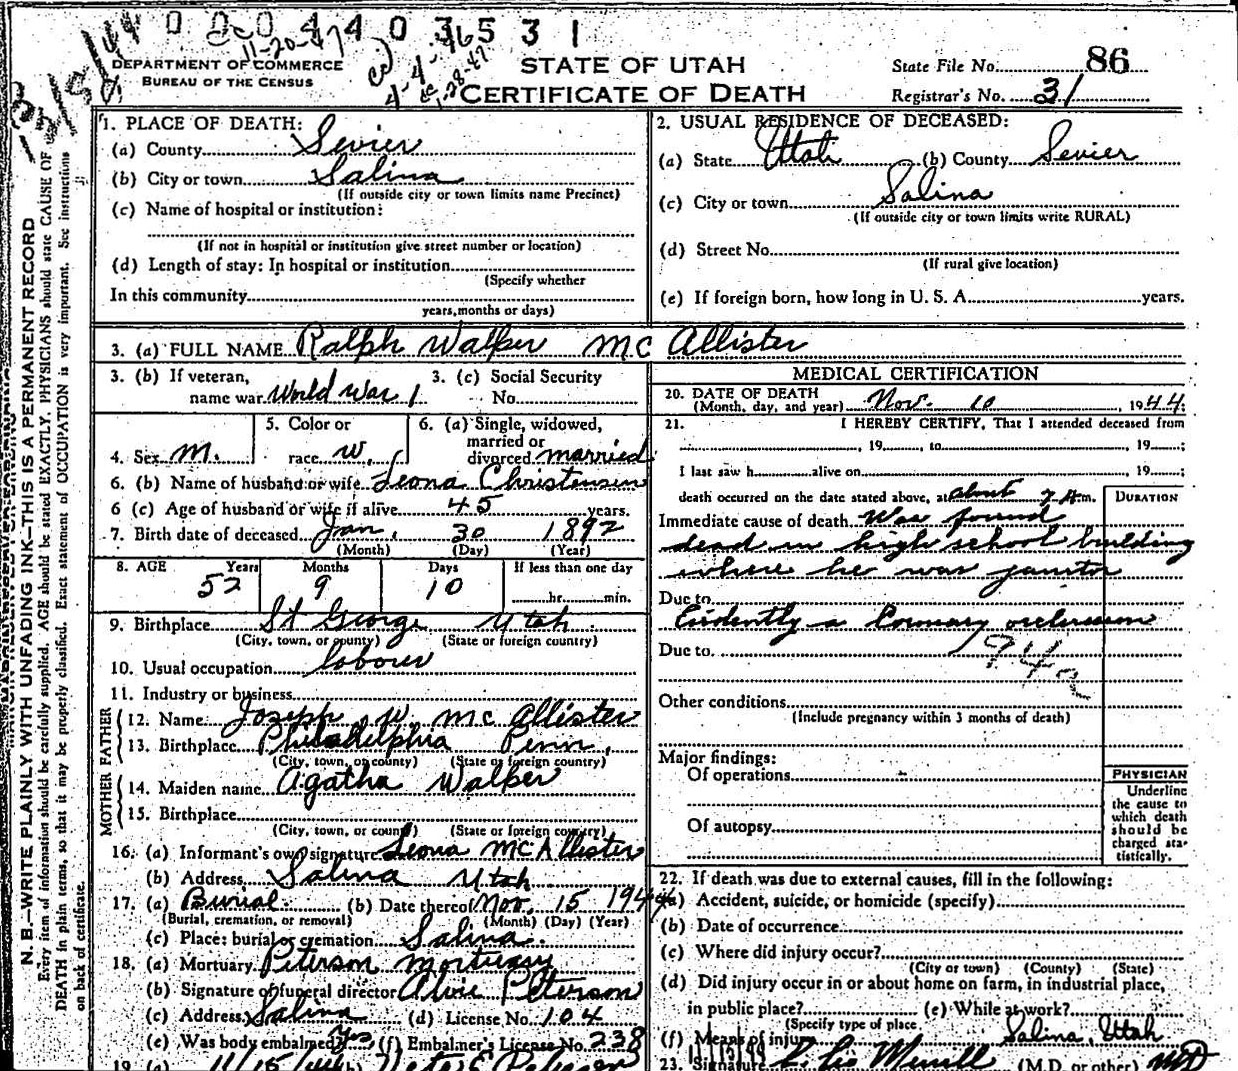 0 0 0 4 4 0 3 6 5 3 1
11-20-47
DEPARTMENT OF COMMERCE
BUREAU OF THE CENSUS
STATE OF UTAH
CERTIFICATE OF DEATH
State File No. 86
Registrar's No. 31
N. B.—WRITE PLAINLY WITH UNFADING INK—THIS IS A PERMANENT RECORD
Every item of information should be carefully supplied. AGE should be stated EXACTLY. PHYSICIANS should state CAUSE OF
DEATH in plain terms, so that it may be properly classified. Exact statement of OCCUPATION is very important. See instructions
on back of certificate.
1. PLACE OF DEATH:
(a) County Sevier
(b) City or town Salina
(If outside city or town limits name Precinct)
(c) Name of hospital or institution:
(If not in hospital or institution give street number or location)
(d) Length of stay: In hospital or institution
(Specify whether
In this community
years, months or days)
2. USUAL RESIDENCE OF DECEASED:
(a) State Utah (b) County Sevier
(c) City or town Salina
(If outside city or town limits write RURAL)
(d) Street No.
(If rural give location)
(e) If foreign born, how long in U. S. A. years.
3. (a) FULL NAME Ralph Walker Mc Allister
3. (b) If veteran, name war World War 1
3. (c) Social Security No.
4. Sex m.
5. Color or race w.
6. (a) Single, widowed, married or divorced married
6. (b) Name of husband or wife Leona Christensen
6 (c) Age of husband or wife if alive 45 years.
7. Birth date of deceased Jan. 30 1892
(Month) (Day) (Year)
8. AGE Years Months Days If less than one day
52 9 10 hr. min.
9. Birthplace St George Utah
(City, town, or county) (State or foreign country)
10. Usual occupation laborer
11. Industry or business
FATHER
12. Name Joseph W Mc Allister
13. Birthplace Philadelphia Penn.
(City, town, or county) (State or foreign country)
MOTHER
14. Maiden name Agatha Walker
15. Birthplace
(City, town, or county) (State or foreign country)
16. (a) Informant's own signature Leona McAllister
(b) Address Salina Utah
17. (a) Burial (b) Date thereof Nov. 15 1944
(Burial, cremation, or removal) (Month) (Day) (Year)
(c) Place: burial or cremation Salina.
18. (a) Mortuary Peterson Mortuary
(b) Signature of funeral director Alvie Peterson
(c) Address Salina (d) License No. 104
(e) Was body embalmed? yes (f) Embalmer's License No. 238
19. (a) 11/15/44
MEDICAL CERTIFICATION
20. DATE OF DEATH
(Month, day, and year) Nov. 10, 1944;
21. I HEREBY CERTIFY, That I attended deceased from
, 19 , to , 19 ;
I last saw h alive on , 19 ;
death occurred on the date stated above, at about 7 A m.
DURATION
Immediate cause of death Was found
dead in high school building
where he was janitor
Due to
Evidently a Coronary occlusion
Due to
94a
Other conditions
(Include pregnancy within 3 months of death)
Major findings:
Of operations
Of autopsy
PHYSICIAN
Underline
the cause to
which death
should be
charged sta-
tistically.
22. If death was due to external causes, fill in the following:
(a) Accident, suicide, or homicide (specify)
(b) Date of occurrence
(c) Where did injury occur?
(City or town) (County) (State)
(d) Did injury occur in or about home on farm, in industrial place,
in public place? (e) While at work?
(Specify type of place
(f) Means of injury Salina, Utah
23. Signature Merrill (M.D. or other) MD